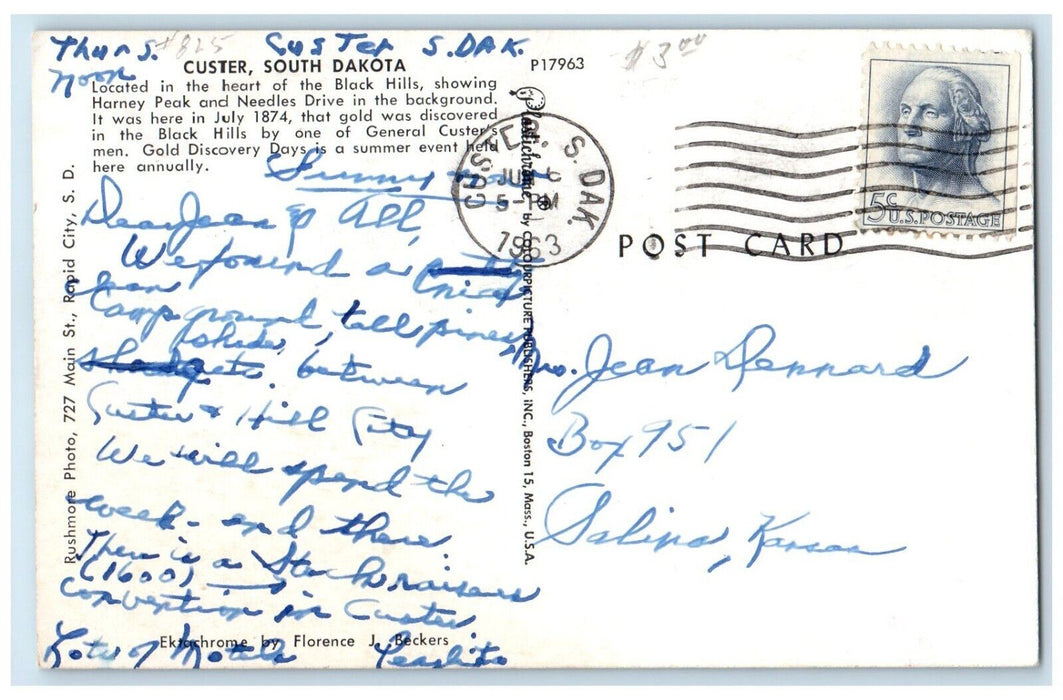 Thurs. #825 Custer S. DAK. $3.00
Noon
CUSTER, SOUTH DAKOTA
Located in the heart of the Black Hills, showing
Harney Peak and Needles Drive in the background.
It was here in July 1874, that gold was discovered
in the Black Hills by one of General Custer's
men. Gold Discovery Days is a summer event held
here annually.
P17963
Sunny
Dear Jean & All,
We found a nice
Camp ground, tall pines,
shade, etc. between
Custer & Hill City
We will spend the
week-end there.
There is a Stockraisers
(1600)
convention in Custer.
Lots of Motels
Ektachrome by Florence J. Beckers
Rushmore Photo, 727 Main St., Rapid City, S. D.
Plastichrome ® by COLOURPICTURE PUBLISHERS, INC., Boston 15, Mass., U.S.A.
CUSTER, S. DAK.
5-PM
1963
5c U.S. POSTAGE
POST CARD
Mrs. Jean Dennard
Box 951
Salina, Kansas